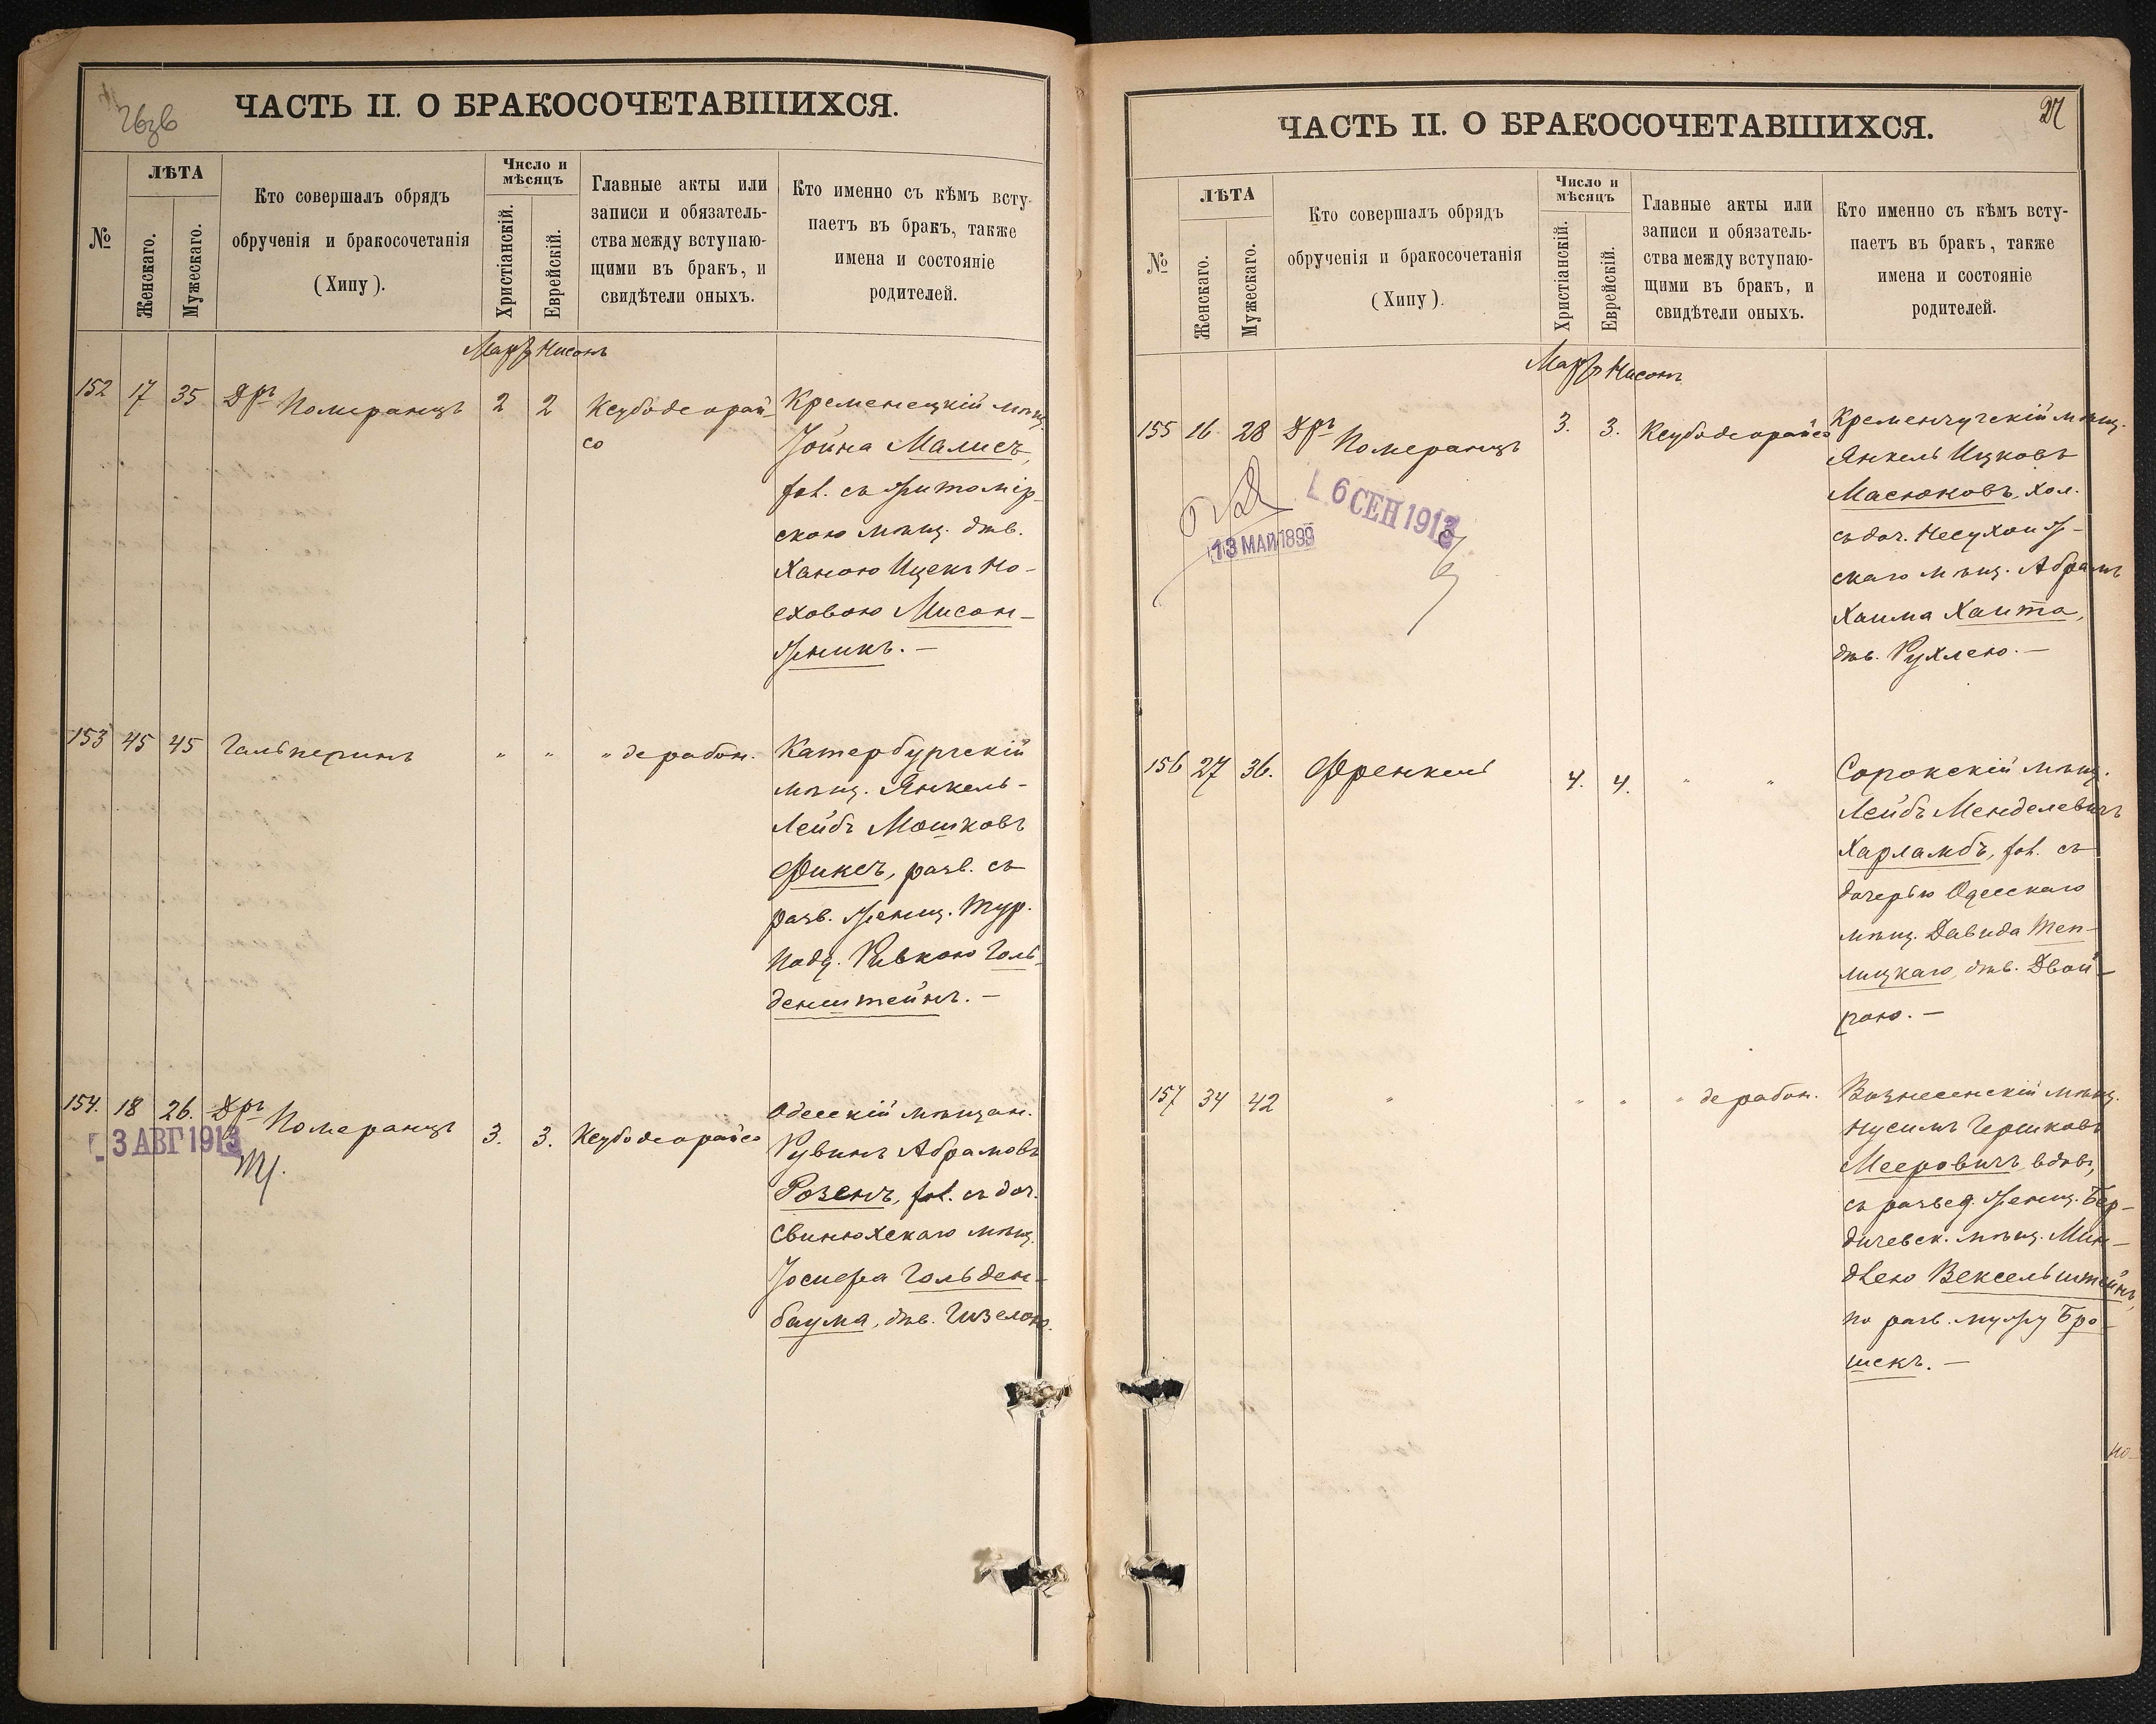 ЧАСТЬ II. О БРАКОСОЧЕТАВШИХСЯ.
№
ЛѢТА
Женскаго.
Мужескаго.
Кто совершалъ обрядъ
обрученія и бракосочетанія
(Хипу).
Число и
мѣсяцъ
Христіанскій.
Еврейскій.
Главные акты или
записи и обязатель-
ства между вступаю-
щими въ бракъ, и
свидѣтели оныхъ.
Кто именно съ кѣмъ всту-
паетъ въ бракъ, также
имена и состояніе
родителей.
Мартъ Нисонъ
152 17 35 Дръ Померанцъ 2 2 Ксубо деорай-
со
Кременецкій мѣщ.
Іойна Малисъ,
хол. съ Житомір-
скою мѣщ. дѣв.
Ханою Ицекъ Но-
еховою Мисон-
жникъ. —
153 45 45 Гальперинъ " " " де рабон.
Катербургскій
мѣщ. Янкель-
Лейбъ Мошковъ
Фиксъ, разв. съ
разв. женщ. Тур.
подд. РивкоюГоль-
денштейнъ. —
154. 18 26. Дръ Померанцъ 3. 3. Ксубо деорайсо
3 АВГ 1913
Одесскій мѣщан.
Рувинъ Абрамовъ
Розенъ, хол. съ доч.
Свинюхскаго мѣщ.
Іосифа Гольден-
баума, дѣв. Гизелою.
ЧАСТЬ II. О БРАКОСОЧЕТАВШИХСЯ.
27
№
ЛѢТА
Женскаго.
Мужескаго.
Кто совершалъ обрядъ
обрученія и бракосочетанія
(Хипу).
Число и
мѣсяцъ
Христіанскій.
Еврейскій.
Главные акты или
записи и обязатель-
ства между вступаю-
щими въ бракъ, и
свидѣтели оныхъ.
Кто именно съ кѣмъ всту-
паетъ въ бракъ, также
имена и состояніе
родителей.
Мартъ Нисонъ
155 16. 28 Дръ Померанцъ 3. 3. Ксубо деорайсо
6 СЕН 1913
13 МАЙ 1899
Кременчугскій мѣщ.
Янкель Ицковъ
Масюковъ, хол.
съ доч. Несухоиж-
скаго мѣщ. Абрамъ
Хаима Хаита,
дѣв. Рухлею. —
156 27 36. Френкель 4. 4. " "
Сорокскій мѣщ.
Лейбъ Менделевичъ
Харламбъ, хол. съ
дочерью Одесскаго
мѣщ. Давида Теп-
лицкаго, дѣв. Двой-
рою. —
157 34 42 " " " " де рабон.
Вознесенскій мѣщ.
Нусимъ Гершковъ
Мееровичъ, вдов.,
съ развед. женщ. Бер-
дичевск. мѣщ. Мин-
длею Вексельштейнъ,
по разв. мужу Бро-
шекъ. —